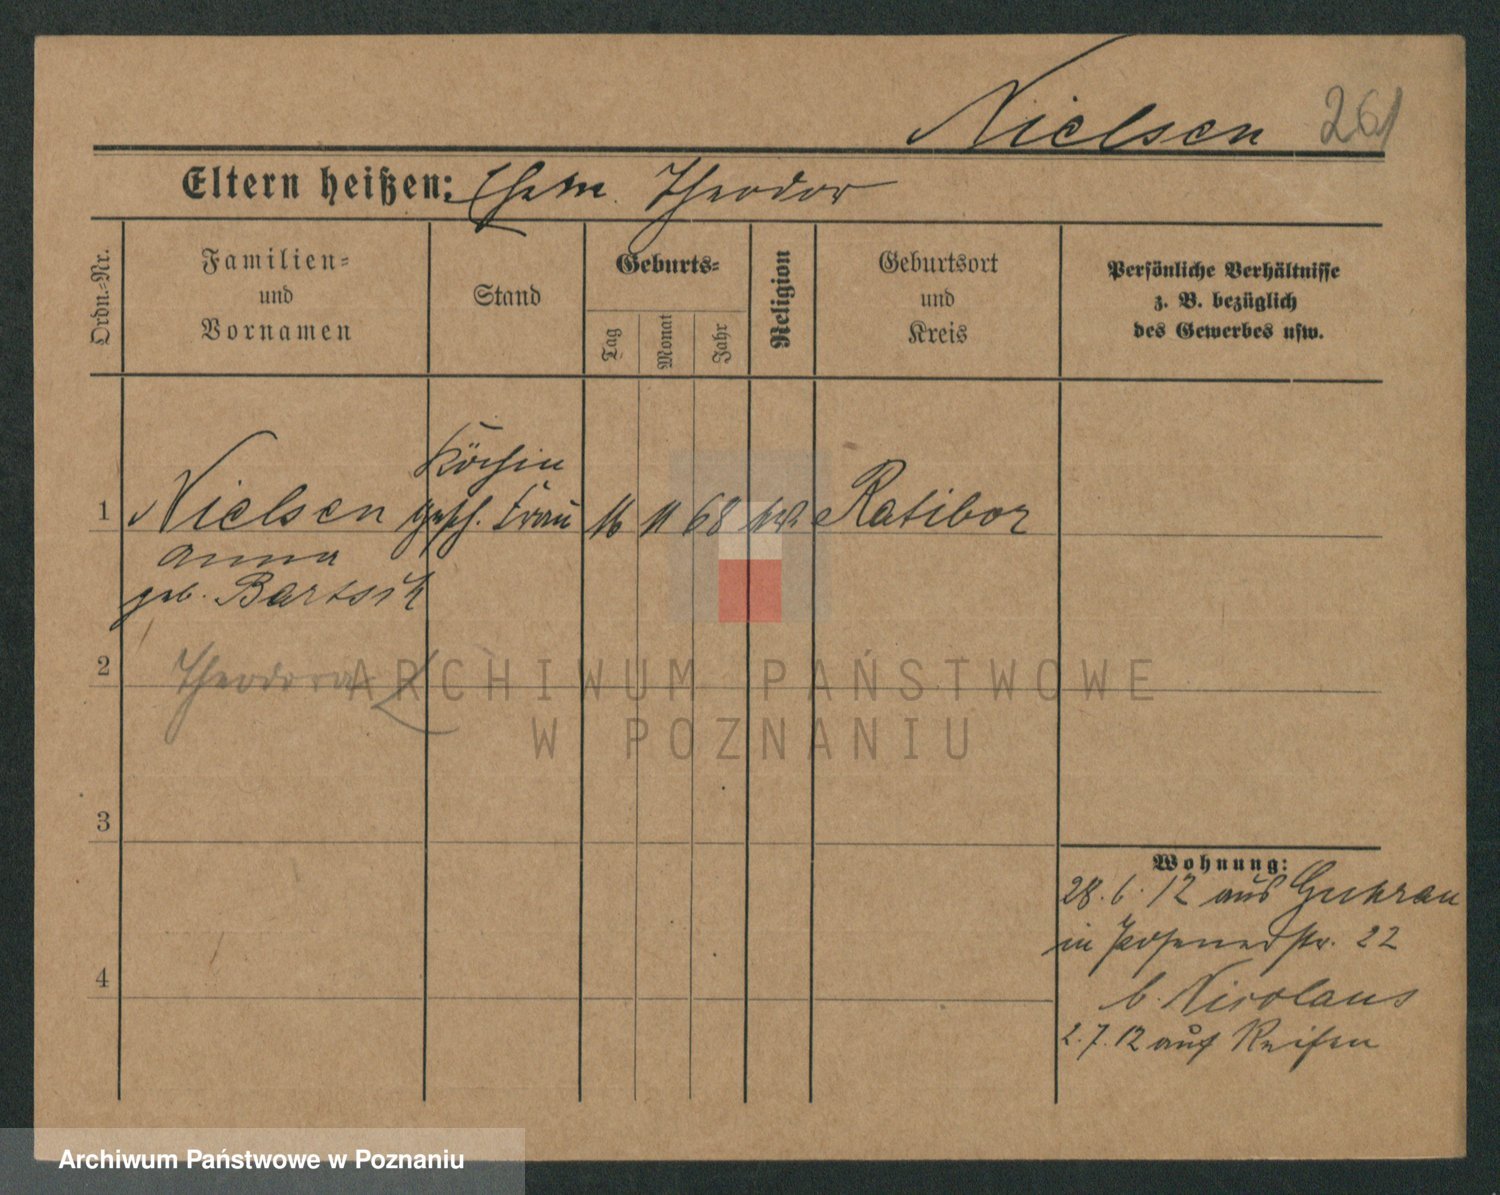 Nielsen 261
Eltern heißen: Ehem. Theodor
Ordn.-Nr.
Familien-
und
Vornamen
Stand
Geburts-
Tag
Monat
Jahr
Religion
Geburtsort
und
Kreis
Persönliche Verhältnisse
z. B. bezüglich
des Gewerbes usw.
Köchin
1 Nielsen gesch. Frau 16 11 68 Ratibor
Anna
geb. Bartsch
2 Theodora
3
4
Wohnung:
28.6.12 aus Guhrau
in Posenerstr. 22
b. Nicolaus
2.7.12 auf Reisen
ARCHIWUM PAŃSTWOWE
W POZNANIU
Archiwum Państwowe w Poznaniu